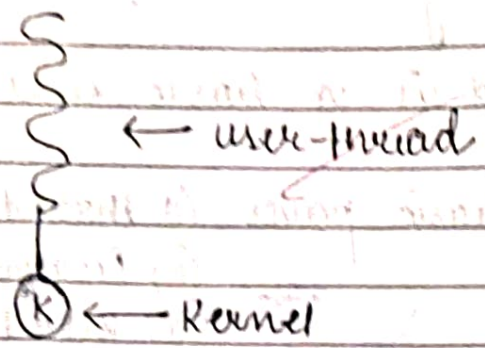 ← user-thread
K ← Kernel